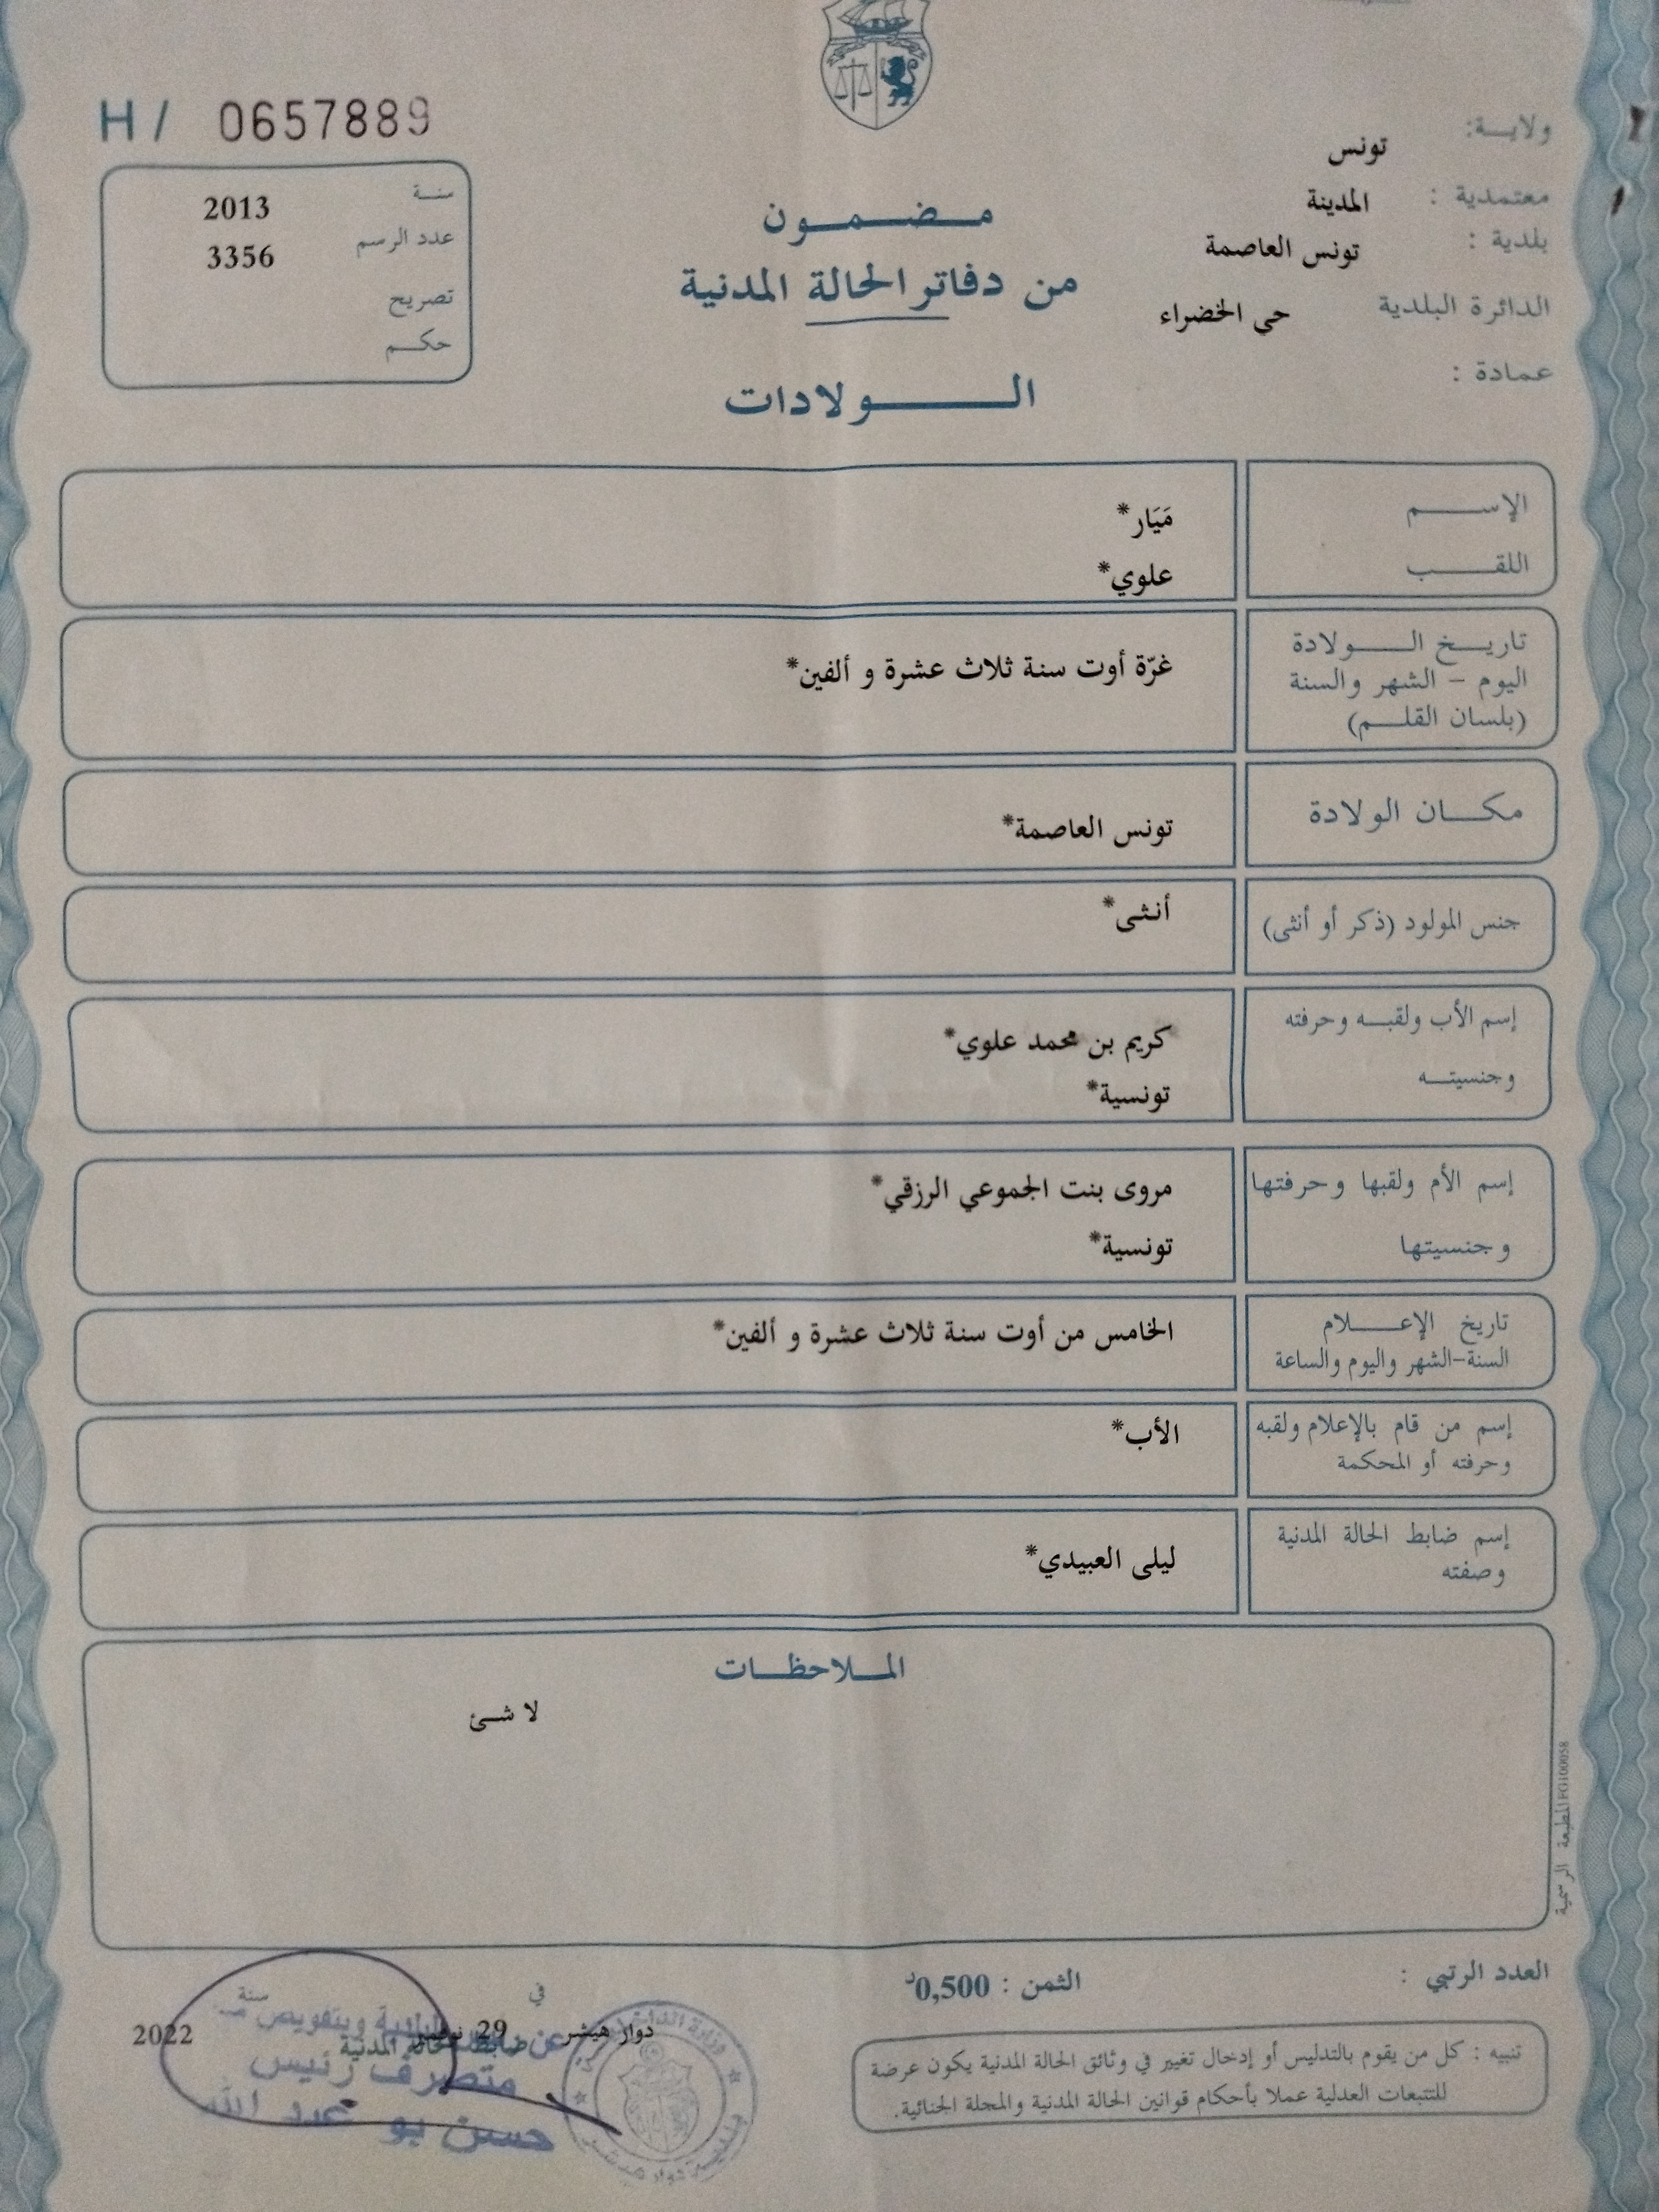 H / 0657889
ولاية: تونس
معتمدية : المدينة
بلدية : تونس العاصمة
الدائرة البلدية حي الخضراء
عمادة :
سنة 2013
عدد الرسم 3356
تصريح
حكم
مضمون
من دفاتر الحالة المدنية
الولادات
الإسم مَيَار*
اللقب علوي*
تاريخ الولادة
اليوم - الشهر والسنة
(بلسان القلم)
غرّة أوت سنة ثلاث عشرة و ألفين*
مكان الولادة
تونس العاصمة*
جنس المولود (ذكر أو أنثى)
أنثى*
إسم الأب ولقبه وحرفته
كريم بن محمد علوي*
وجنسيته
تونسية*
إسم الأم ولقبها وحرفتها
مروى بنت الجموعي الرزقي*
وجنسيتها
تونسية*
تاريخ الإعلام
السنة-الشهر واليوم والساعة
الخامس من أوت سنة ثلاث عشرة و ألفين*
إسم من قام بالإعلام ولقبه
وحرفته أو المحكمة
الأب*
إسم ضابط الحالة المدنية
وصفته
ليلى العبيدي*
الملاحظات
لا شئ
المطبعة الرسمية FG100058
العدد الرتبي :
الثمن : 0,500د
تنبيه : كل من يقوم بالتدليس أو إدخال تغيير في وثائق الحالة المدنية يكون عرضة
للتتبعات العدلية عملا بأحكام قوانين الحالة المدنية والمجلة الجنائية.
في سنة
دوار هيشر 29 نوفمبر 2022
ضابط الحالة المدنية
وبتفويض
متصرف رئيس
حسن بو عبد الله